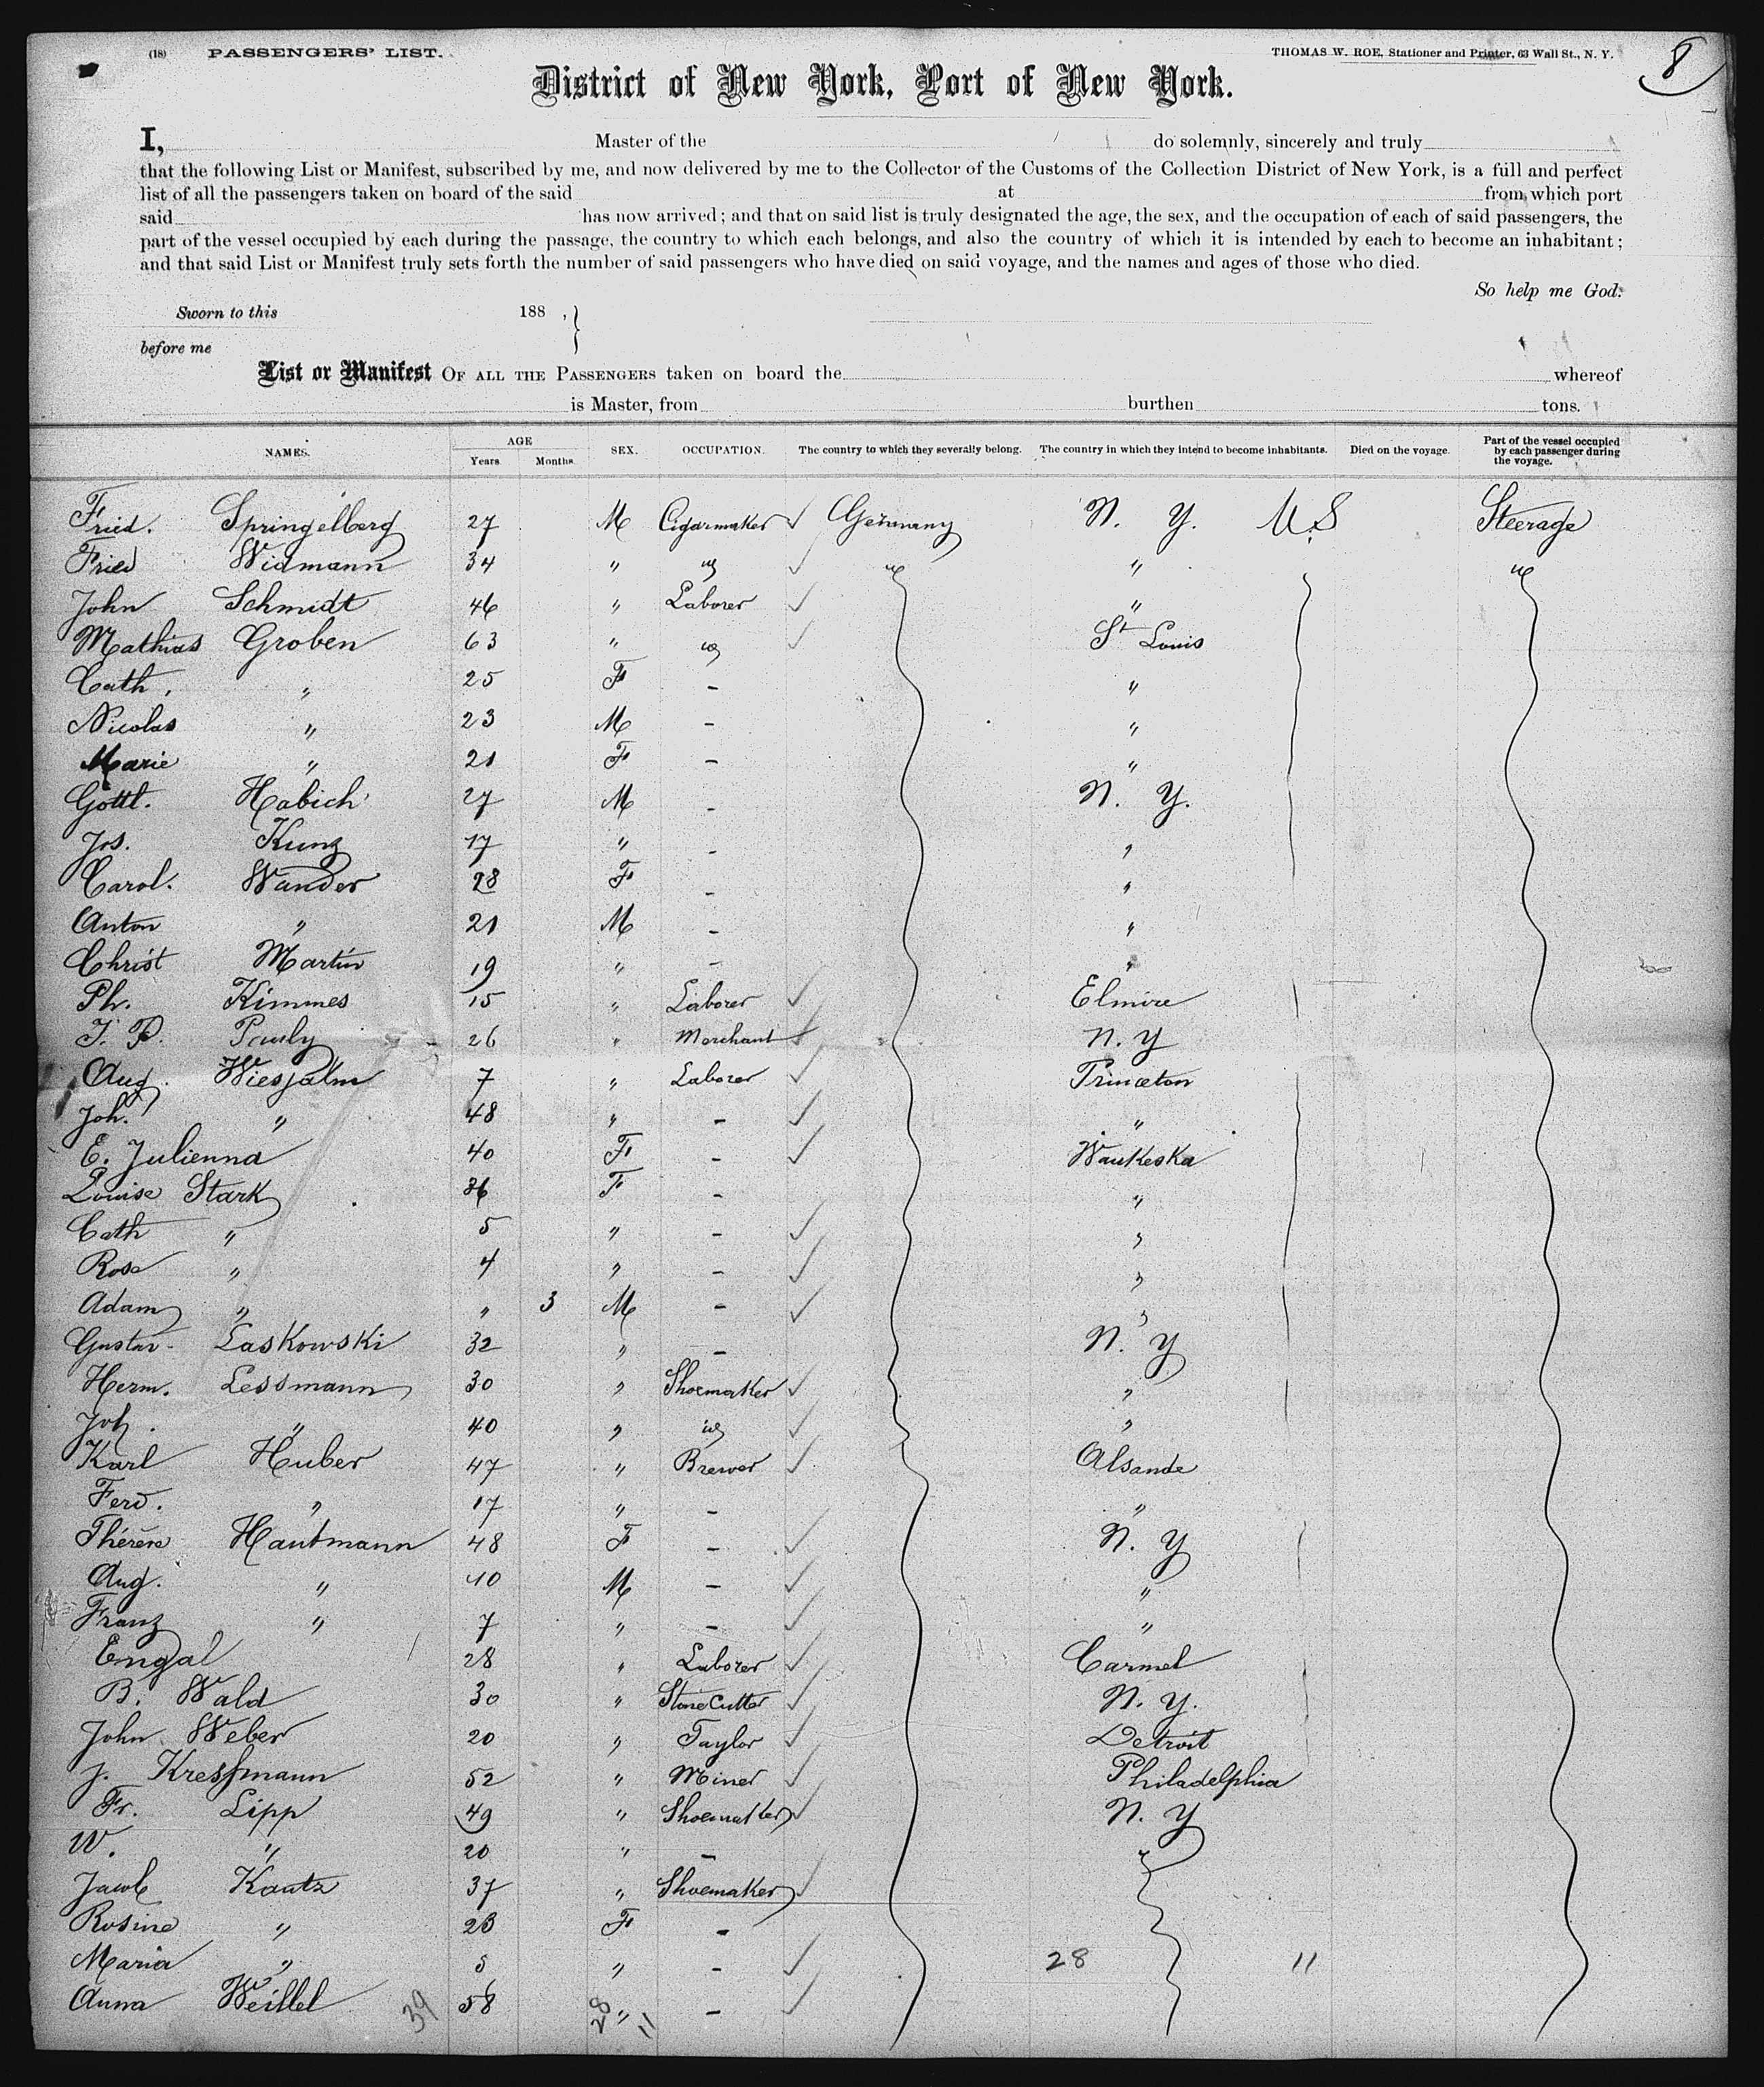 (18) PASSENGERS' LIST. THOMAS W. ROE, Stationer and Printer, 63 Wall St., N. Y. 8
District of New York, Port of New York.
I, Master of the do solemnly, sincerely and truly
that the following List or Manifest, subscribed by me, and now delivered by me to the Collector of the Customs of the Collection District of New York, is a full and perfect
list of all the passengers taken on board of the said at from which port
said has now arrived; and that on said list is truly designated the age, the sex, and the occupation of each of said passengers, the
part of the vessel occupied by each during the passage, the country to which each belongs, and also the country of which it is intended by each to become an inhabitant;
and that said List or Manifest truly sets forth the number of said passengers who have died on said voyage, and the names and ages of those who died.
So help me God.
Sworn to this 188 , }
before me
List or Manifest OF ALL THE PASSENGERS taken on board the whereof
is Master, from burthen tons.
NAMES. AGE Years Months SEX. OCCUPATION. The country to which they severally belong. The country in which they intend to become inhabitants. Died on the voyage. Part of the vessel occupied by each passenger during the voyage.
Fried. Springelberg 27 M Cigarmaker ✓ Germany N. Y. U.S Steerage
Fried Widmann 34 " ✓ "
John Schmidt 46 " Laborer ✓ "
Mathias Groben 63 " ✓ St Louis
Cath. " 25 F - "
Nicolas " 23 M - "
Marie " 21 F - "
Gottl. Habich 27 M - N. Y.
Jos. Kunz 17 " - "
Carol. Wander 28 F - "
Anton " 21 M - "
Christ Martin 19 " - "
Ph. Kimmes 15 " Laborer ✓ Elmire
J. P. Pauly 26 " Merchant ✓ N. Y
Aug. 7 " Laborer ✓ Princeton
Joh. " 48 " - ✓ "
E. Julienna 40 F - ✓ Waukeska
Louise Stark 36 F - "
Cath " 5 " - ✓ "
Rosa " 4 " - ✓ "
Adam " " 3 M - ✓ "
Gustav Laskowski 32 " - N. Y
Herm. Lessmann 30 " Shoemaker ✓ "
Joh. " 40 " ✓ "
Karl Huber 47 " Brewer ✓ Alsande
Ferd. " 17 " - "
Thérèse Hautmann 48 F - ✓ N. Y
Aug. " 10 M - ✓ "
Franz " 7 " - ✓ "
Emgal 28 " Laborer ✓ Carmel
B. Wald 30 " Stone Cutter ✓ N. Y.
John Weber 20 " Taylor ✓ Detroit
J. Kressmann 52 " Miner ✓ Philadelphia
Fr. Lipp 49 " Shoemaker ✓ N. Y
W. " 20 " -
Jacob Kautz 37 " Shoemaker ✓
Rosine " 23 F -
Maria " 5 " - ✓ 28 11
Anna 39 58 " - ✓
28 11